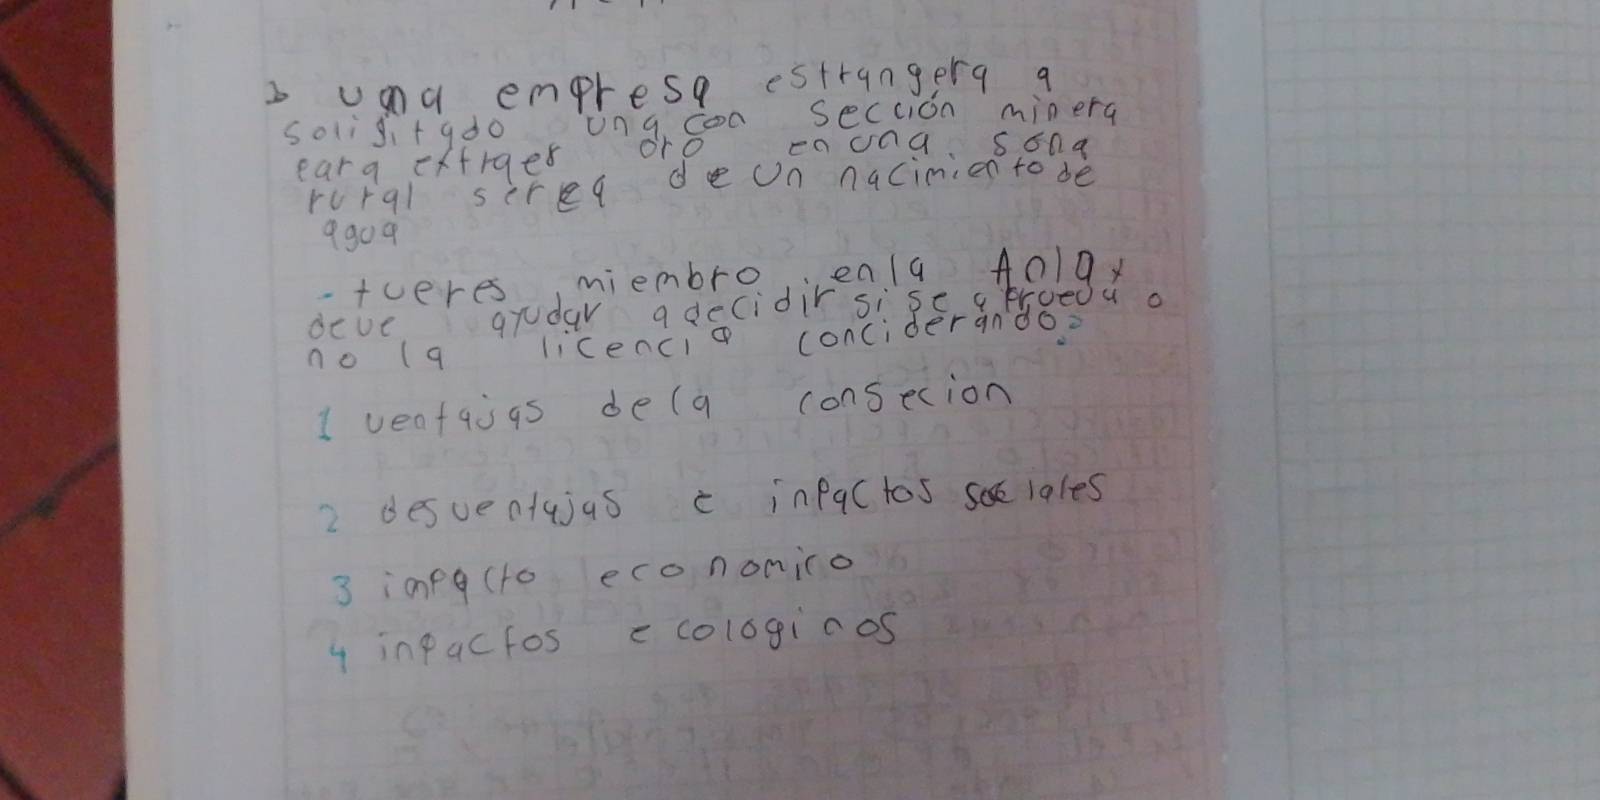 una empresa estrangera a
solisitado una con sección minera
para extraer oro en una sona
rural serca de un nacimiento de
agua
- tueres miembro en la Anla y
deve ayudar a decidir si se aprueva o
no la licencia conciderando:
1 ventajas de la consecion
2 desventajas e inpactos sociales
3 impacto economico
4 inpactos ecologinos